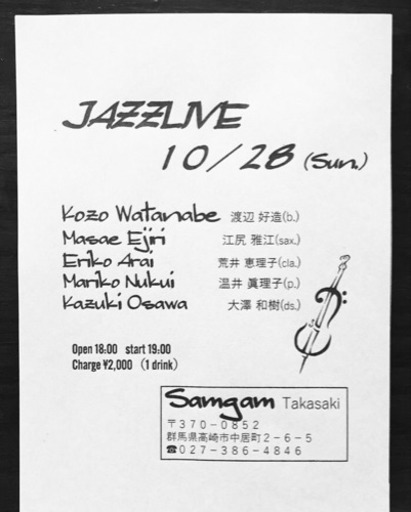 JAZZLIVE
10/28 (Sun.)
Kozo Watanabe 渡辺 好造(b.)
Masae Ejiri 江尻 雅江(sax.)
Eriko Arai 荒井 恵理子(cla.)
Mariko Nukui 温井 眞理子(p.)
Kazuki Osawa 大澤 和樹(ds.)
Open 18:00 start 19:00
Charge ¥2,000 (1 drink)
Samgam Takasaki
〒370-0852
群馬県高崎市中居町2-6-5
☎027-386-4846